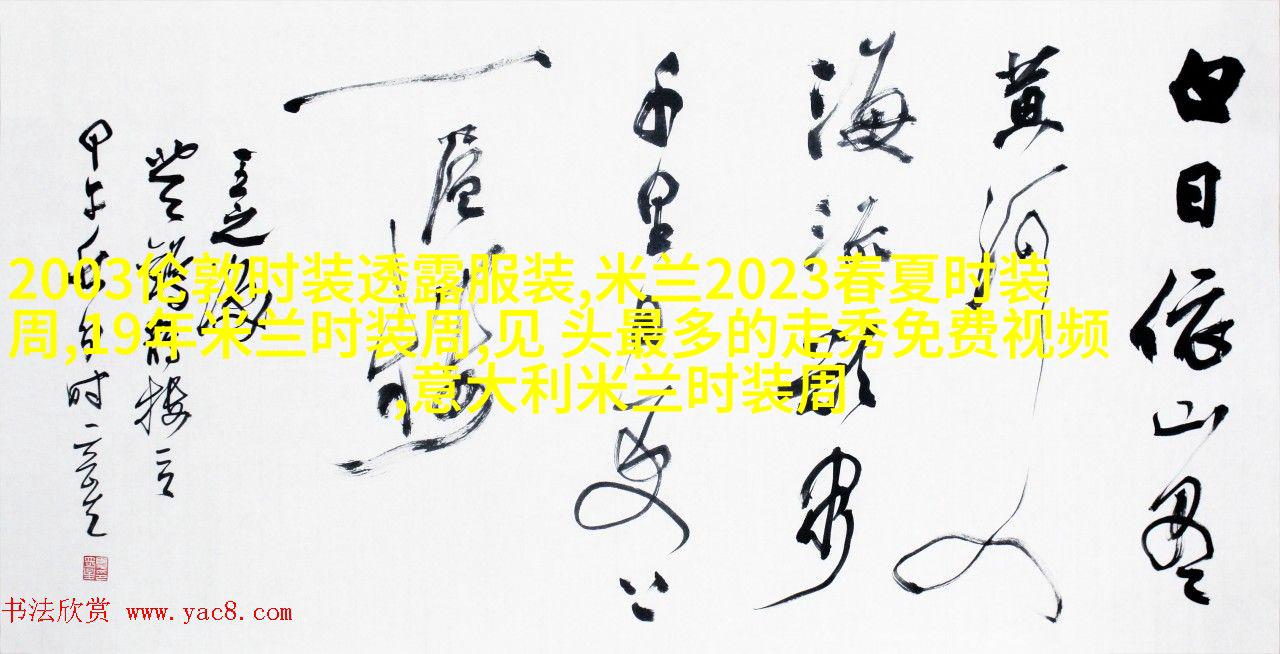 白日依山盡
黄河入
海流欲窮
千里目更上
一層樓
王之涣
登鹳雀楼
甲午秋月
2003伦敦时装透露服装,米兰2023春夏时装
周,19年米兰时装周,见 头最多的走秀免费视频
,意大利米兰时装周
书法欣赏 www.yac8.com